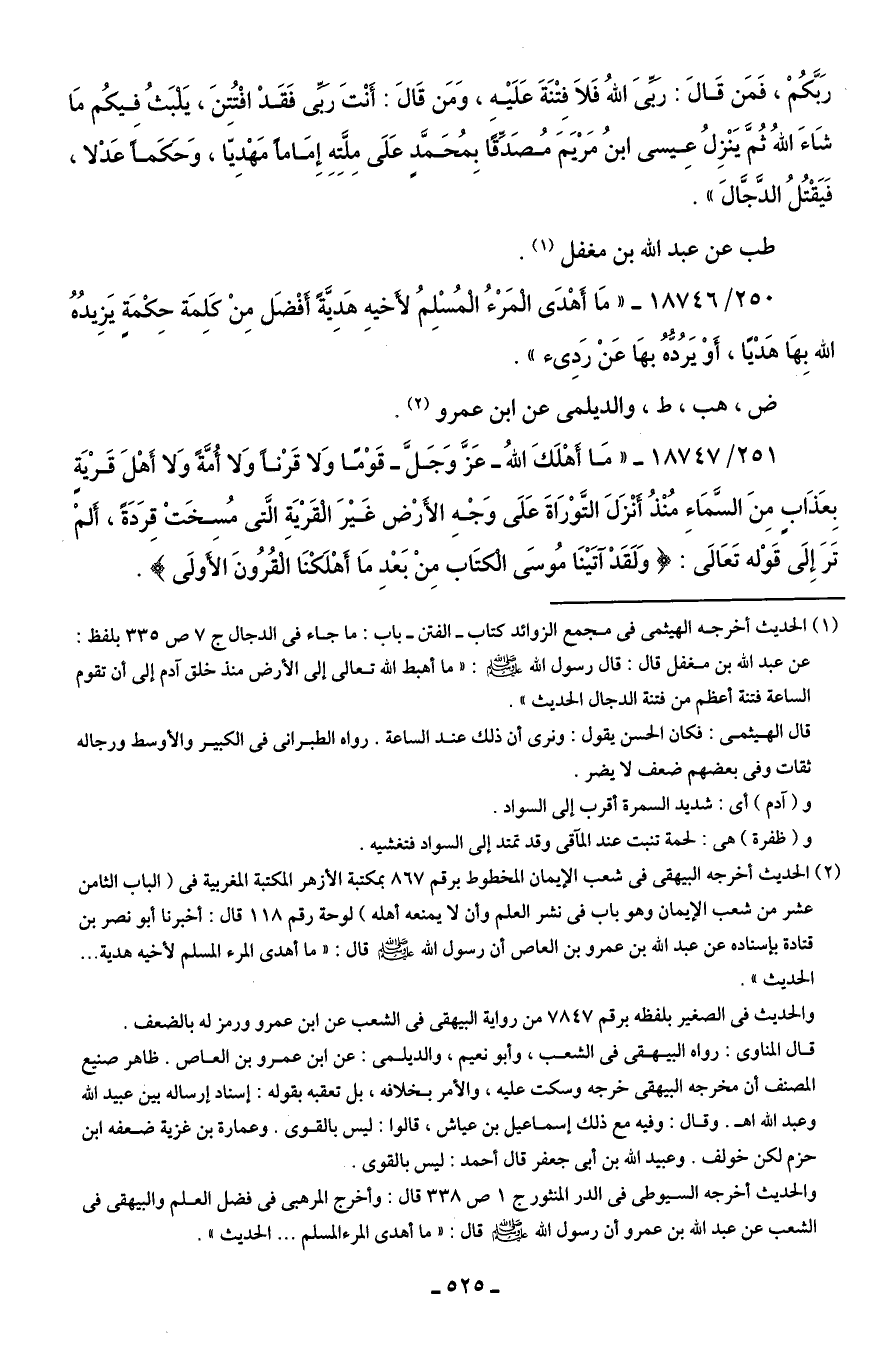 رَبَّكُمْ ، فَمَن قَـالَ : رَبِّىَ اللهُ فَلاَ فِتْنَةَ عَلَيْهِ ، وَمَن قَالَ : أَنْتَ رَبِّى فَقَـدْ افْتُتِنَ ، يَلْبَثُ فِـيكُم مَا
شَاءَ اللهُ ثُمَّ يَنْزِلُ عِـيسى ابنُ مَرْيَمَ مُـصَدِّقًا بِمُحَـمَّدٍ عَلَى مِلَّتِهِ إِمَـاماً مَهْدِيّا ، وَحَكَمـاً عَدْلا ،
فَيَقْتُلُ الدَّجَّالَ » .
طب عن عبد الله بن مغفل (١) .
١٨٧٤٦/٢٥٠ ـ « مَا أَهْدَى الْمَرْءُ الْمُسْلِمُ لأَخيهِ هَديَّةً أَفْضَلَ مِنْ كَلِمَة حِكْمَةٍ يَزِيدُهُ
الله بِهَا هَدْيًا ، أَوْ يَرُدُّهُ بهَا عَنْ رَدِىء » .
ض ، هب ، ط ، والديلمى عن ابن عمرو (٢) .
١٨٧٤٧/٢٥١ ـ « مَـا أَهْلَكَ اللهُ ـ عَزَّ وَجَـلَّ ـ قَوْمًـا وَلا قَرْنـاً وَلا أُمَّةً وَلا أَهْلَ قَـرْيَةٍ
بِعَذَابٍ مِنَ السَّمَاءِ مُنْذُ أَنْزَلَ التَّوْرَاةَ عَلَى وَجْـهِ الأَرْضِ غَـيْرَ الْقَرْيَةِ الَّتى مُسِـخَتْ قِرَدَةً ، أَلَمْ
تَرَ إِلَى قَوْلِه تَعَالَى : ﴿ وَلَقَدْ آتَيْنَا مُوسَى الْكتَابَ مِنْ بَعْدِ مَا أَهْلَكْنَا الْقُرُونَ الأُولَى ﴾ .
(١) الحديث أخرجـه الهيثمى فى مـجمع الزوائد كتاب ـ الفتن ـ باب : ما جـاء فى الدجال ج ٧ ص ٣٣٥ بلفظ :
عن عبد الله بن مـغفل قال : قال رسول الله ﷺ : « ما أهبط الله تـعالى إلى الأرض منذ خلق آدم إلى أن تقوم
الساعة فتنة أعظم من فتنة الدجال الحديث » .
قال الهـيثمـى : فكان الحسن يقول : ونرى أن ذلك عنـد الساعة . رواه الطبـرانى فى الكبيـر والأوسط ورجاله
ثقات وفى بعضهم ضعف لا يضر .
و ( آدم ) أى : شديد السمرة أقرب إلى السواد .
و ( ظفرة ) هى : لحمة تنبت عند المآقى وقد تمتد إلى السواد فتغشيه .
(٢) الحديث أخرجه البيهقى فى شعب الإيمان المخطوط برقم ٨٦٧ بمكتبة الأزهر المكتبة المغربية فى ( الباب الثامن
عشر من شعب الإيمان وهو باب فى نشر العلم وأن لا يمنعه أهله ) لوحة رقم ١١٨ قال : أخبرنا أبو نصر بن
قتادة بإسناده عن عبد الله بن عمرو بن العاص أن رسول الله ﷺ قال : « ما أهدى المرء المسلم لأخيه هدية...
الحديث » .
والحديث فى الصغير بلفظه برقم ٧٨٤٧ من رواية البيهقى فى الشعب عن ابن عمرو ورمز له بالضعف .
قـال المناوى : رواه البيـهـقى فى الشعـب ، وأبو نعيم ، والديلـمى : عن ابن عمـرو بن العـاص . ظاهر صنيع
المصنف أن مخرجه البيهقى خرجه وسكت عليه ، والأمر بـخلافه ، بل تعقبه بقوله : إسناد إرساله بين عبيد الله
وعبد الله اهـ . وقـال : وفيه مع ذلك إسمـاعيل بن عياش ، قالوا : ليس بالقـوى . وعمارة بن غزية ضـعفه ابن
حزم لكن خولف . وعبيد الله بن أبى جعفر قال أحمد : ليس بالقوى .
والحديث أخرجه السيوطى فى الدر المنثور ج ١ ص ٣٣٨ قال : وأخرج المرهبى فى فضل العلـم والبيهقى فى
الشعب عن عبد الله بن عمرو أن رسول الله ﷺ قال : « ما أهدى المرءالمسلم ... الحديث » .
ـ ٥٢٥ ـ